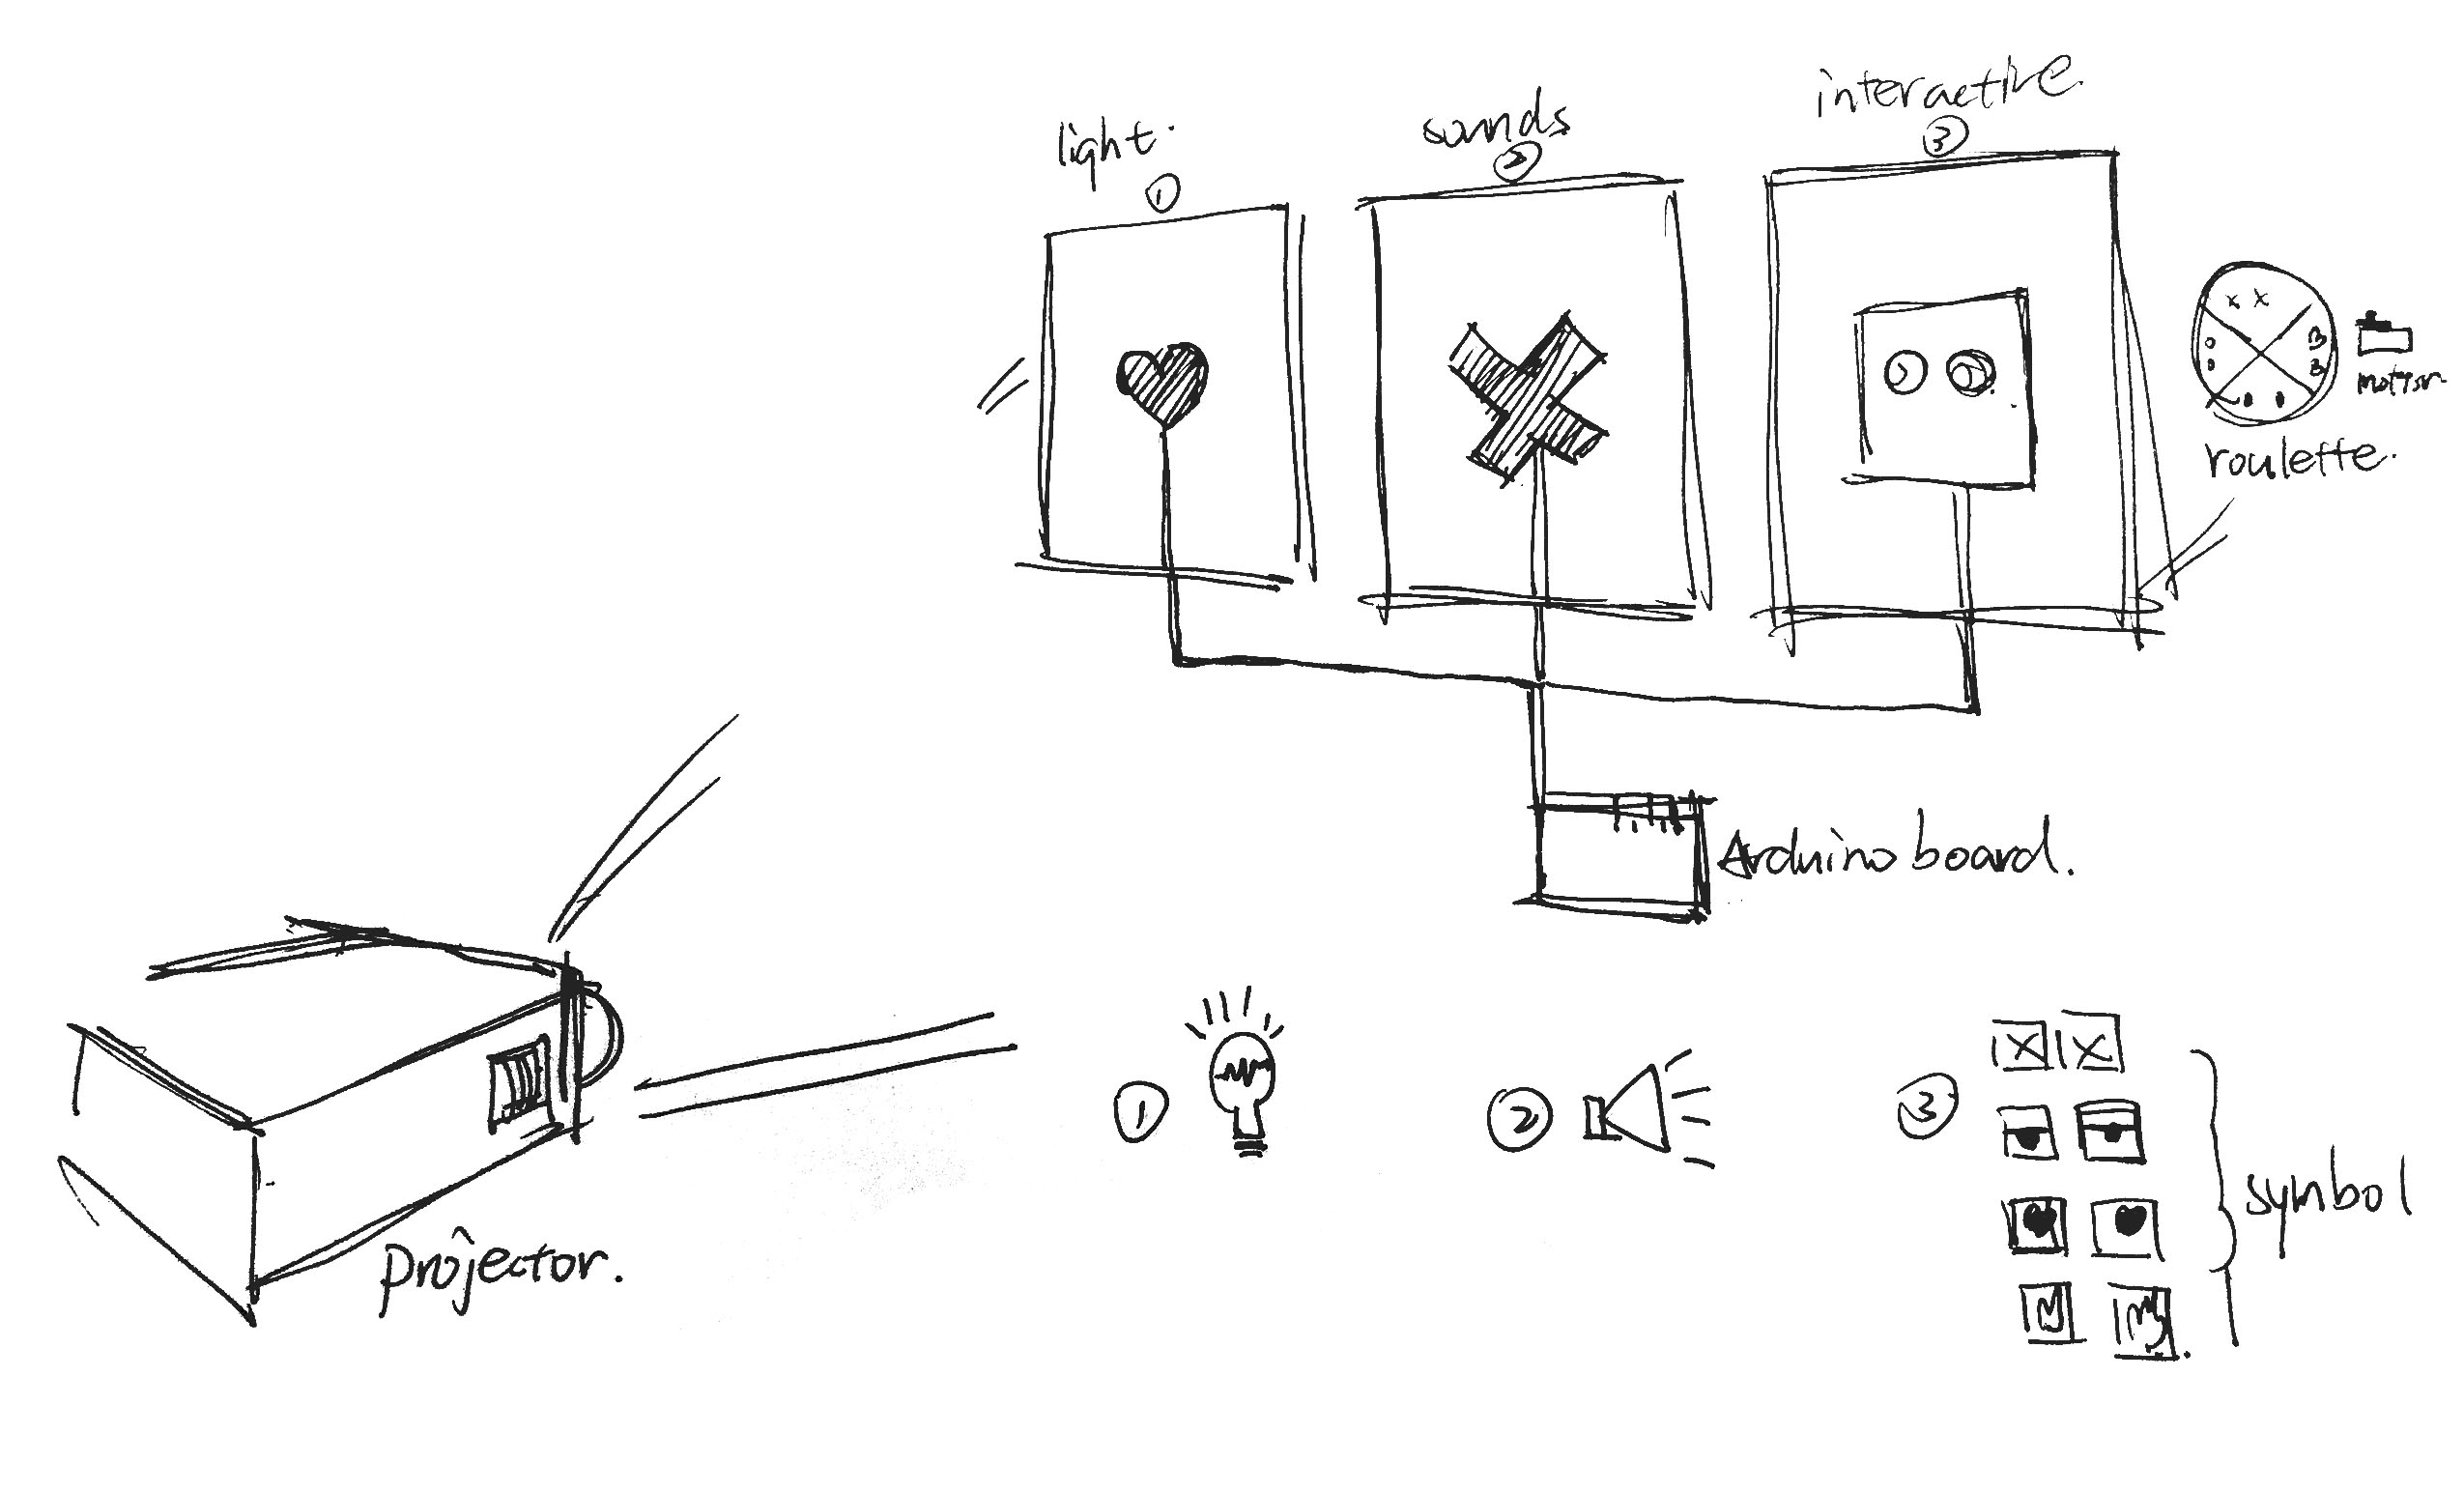 light.
①
sounds
②
interactive.
③
x x
motor.
roulette.
Arduino board.
projector.
①
②
③
symbol